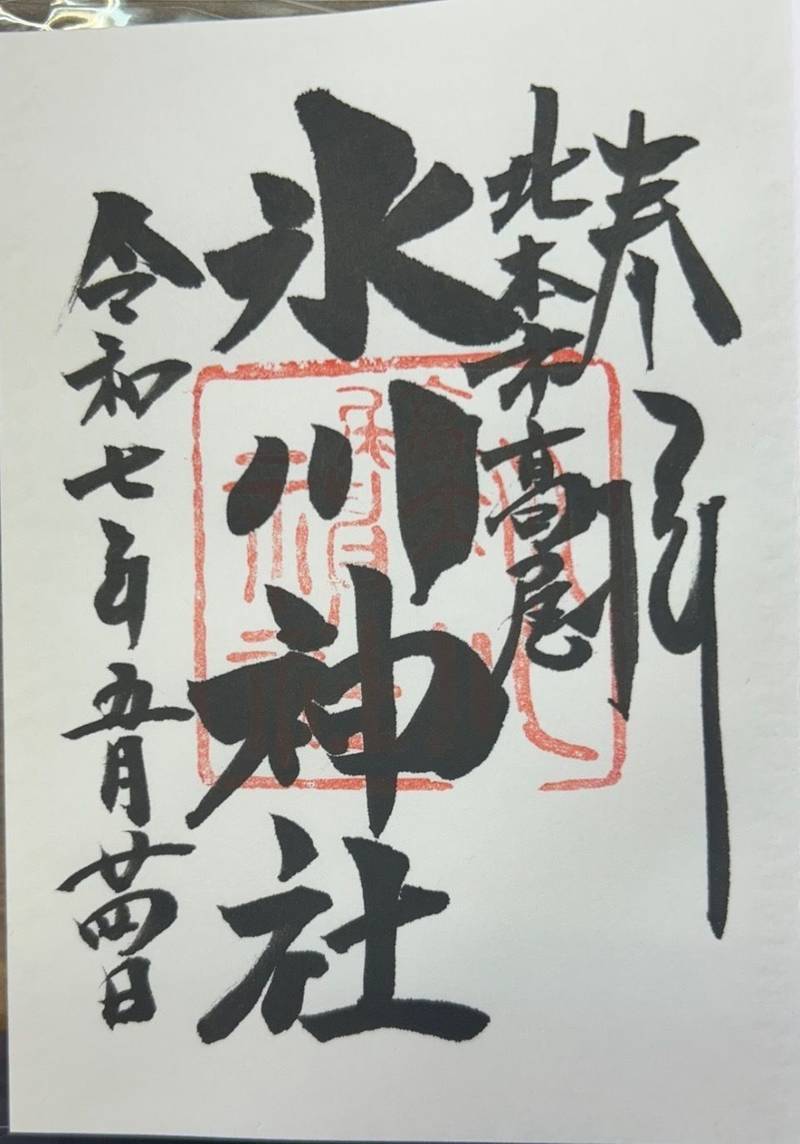 奉拝
北本市高尾
氷川神社
令和七年五月廿四日